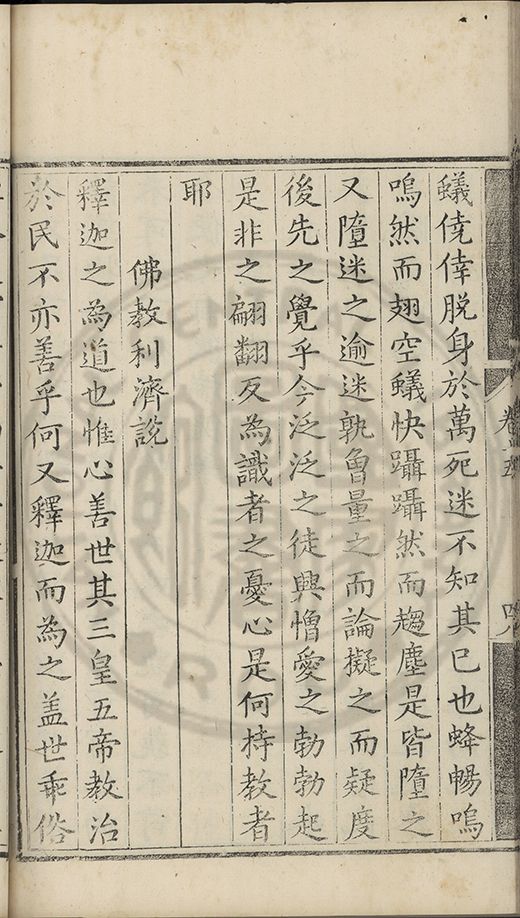 蟻僥倖脫身於萬死迷不知其已也蜂暢嗚
嗚然而翅空蟻快躡躡然而趨塵是皆墮之
又墮迷之逾迷孰曾量之而論擬之而疑度
後先之覺乎今泛泛之徒興憎愛之勃勃起
是非之翩翻反為識者之憂心是何持教者
耶
佛教利濟說
釋迦之為道也惟心善世其三皇五帝教治
於民不亦善乎何又釋迦而為之盖世乖俗